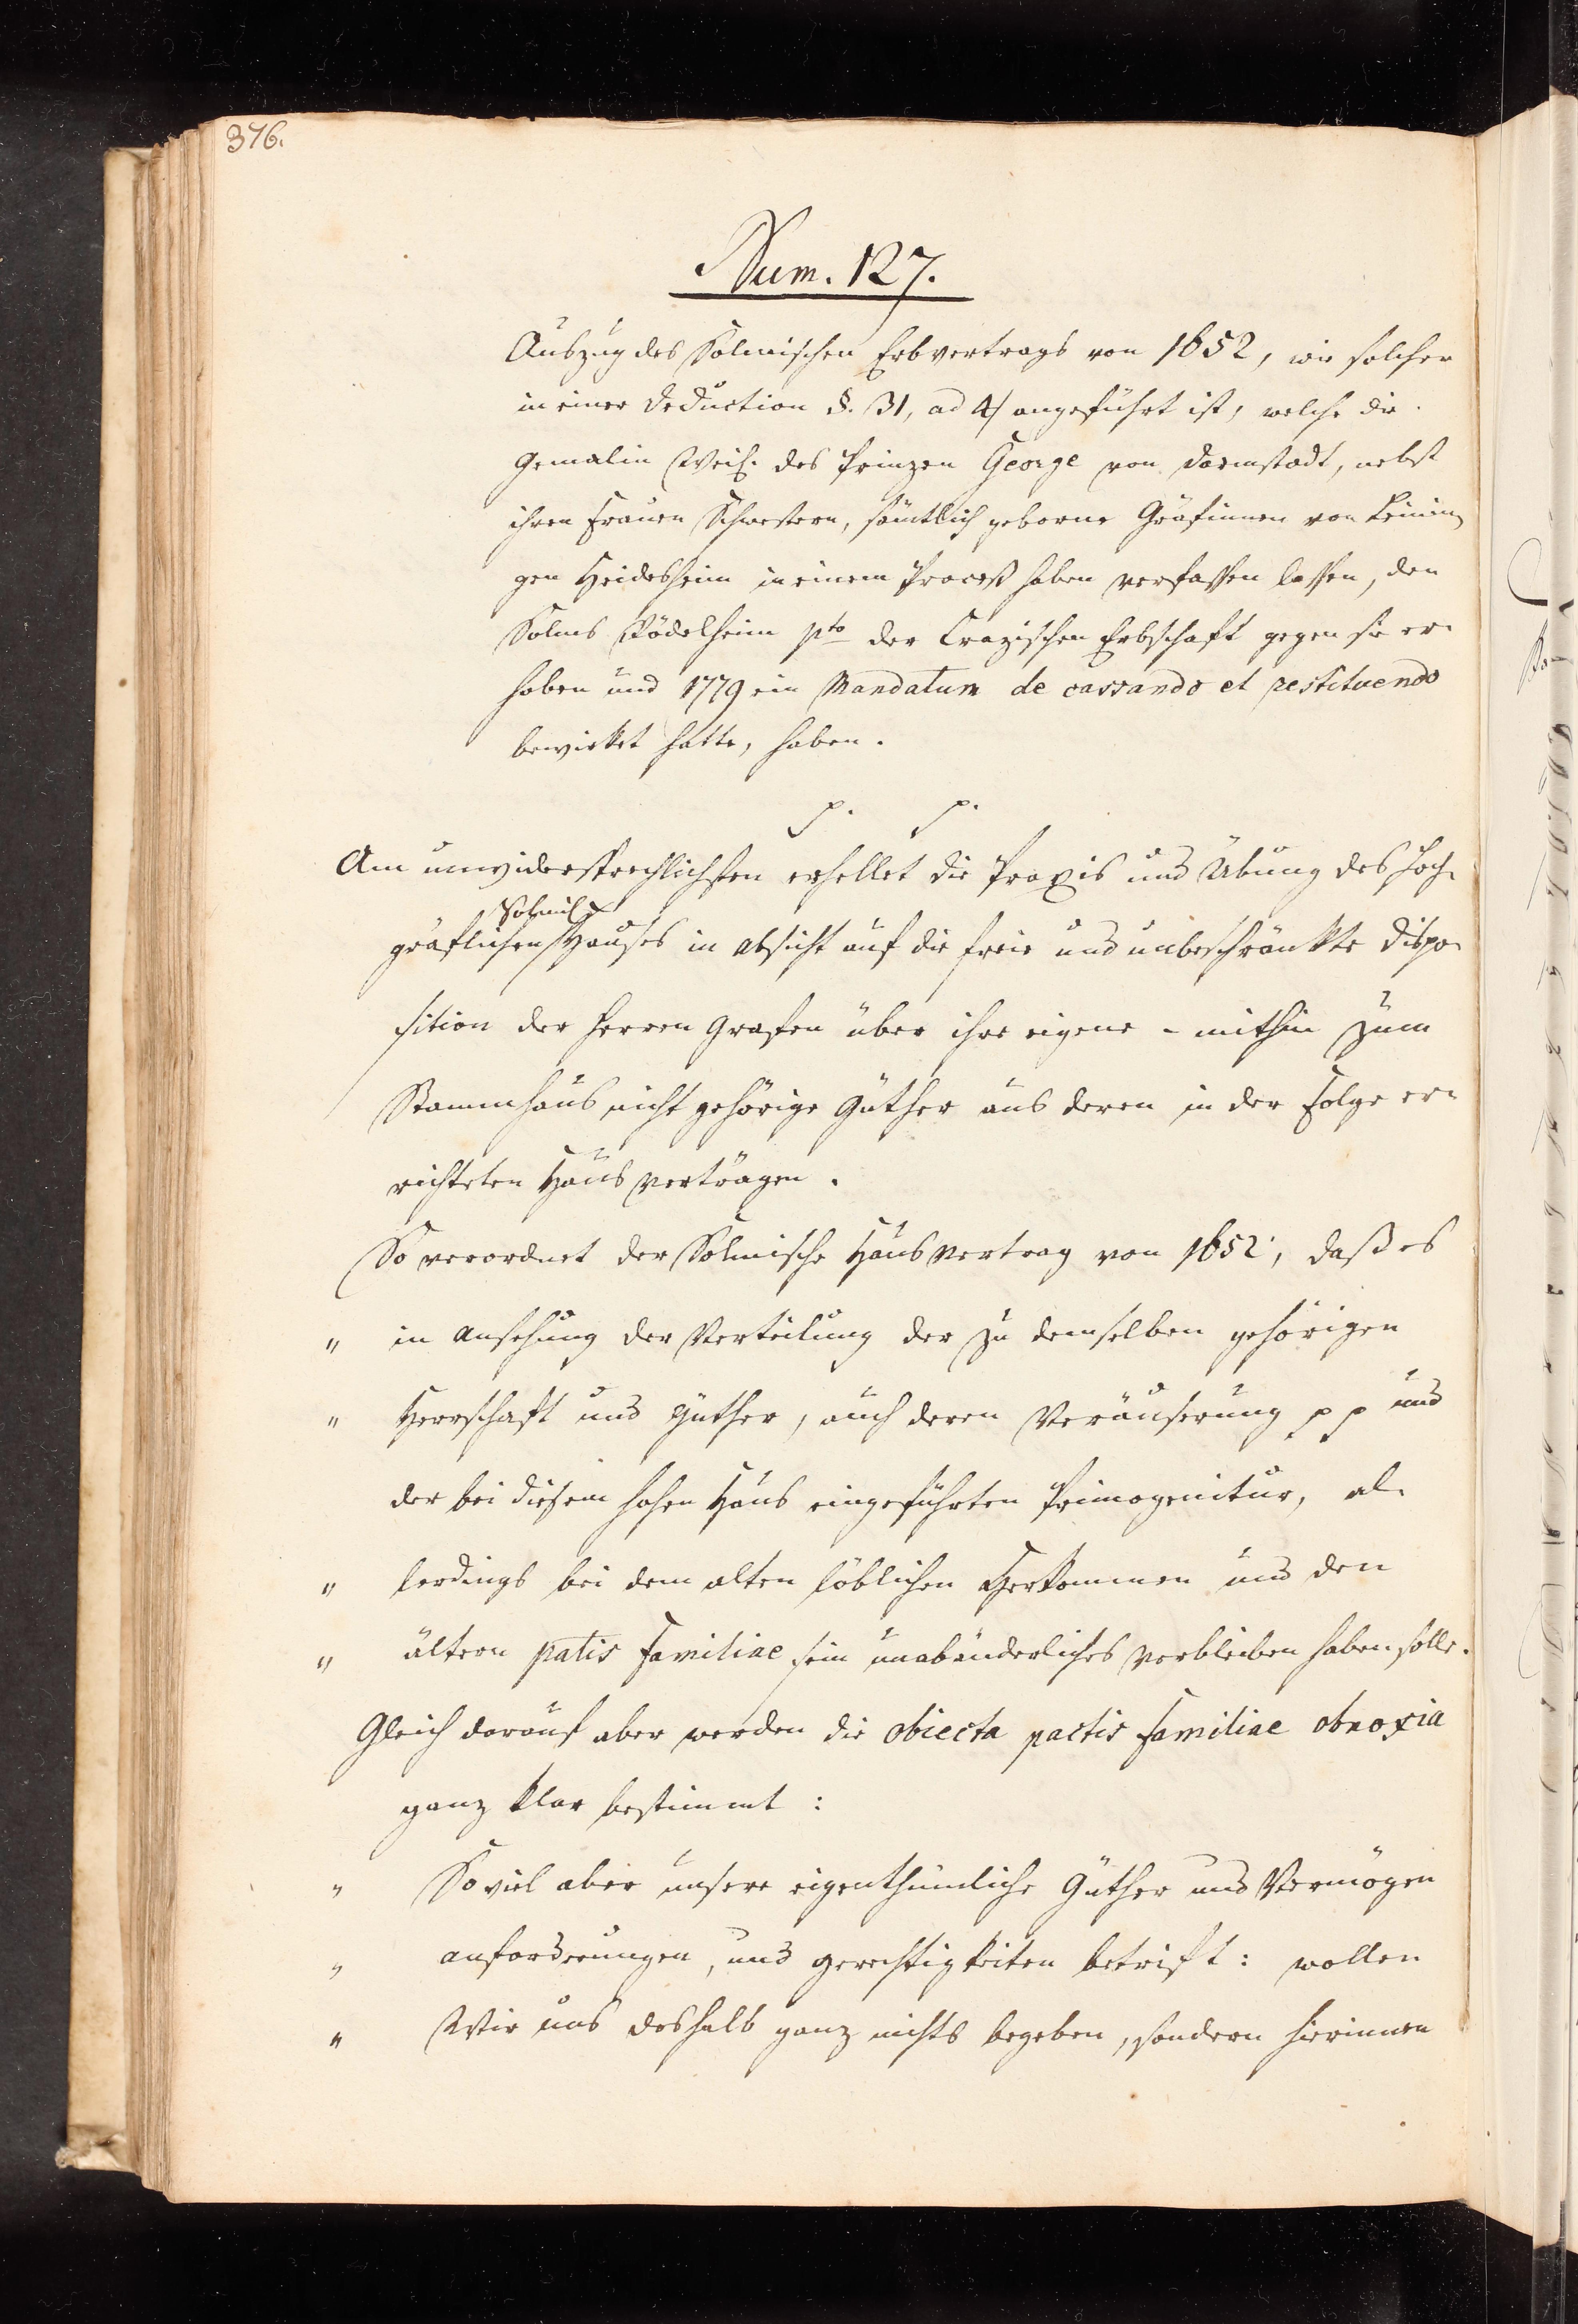 376.
Num. 127.
Auszug des Solmischen Erbvertrags von 1652, wie solcher
in einer Deduction §. 31, ad 4) angeführt ist, welche die
Gemalin Weil. des Prinzen George von Darmstadt, nebst
ihren Frauen Schwestern, sämtlich geborne Gräfinnen von Leinin
gen Heidesheim in einem Proceß haben verfassen lassen, den
Solms Rödelheim pto der Crazischen Erbschaft gegen sie er-
hoben und 1779 ein Mandatum de cassando et restituendo
bewirket hatte, haben.
p. p.
Am unwidersprechlichsten erhellet die Praxis und Übung des Hoch-
Solmis.
gräflichen Hauses in Absicht auf die freie und unbeschränkte Dispo-
sition der Herren Grafen über ihre eigene - mithin zum
Stammhaus nicht gehörige Güther aus deren in der Folge er-
richteten Hausverträgen.
So verordnet der Solmische Hausvertrag von 1652, daß es
" in Ansehung der Verteilung der zu demselben gehörigen
" Herrschaft und Güther, auch deren Veräuserung pp und
der bei diesem hohen Haus eingeführten Primogenitur, al-
" lerdings bei dem alten löblichen Herkommen und den
" ältern patis familiae sein unabänderliches Verbleiben haben solle.
Gleich darauf aber werden die obiecta pactis familiae obnoxia
ganz klar bestimmt:
" So viel aber unsere eigenthümliche Güther und Vermögen
" anforderungen, und Gerechtigkeiten betrift: wollen
" Wir uns deshalb ganz nichts begeben, sondern hierinnen